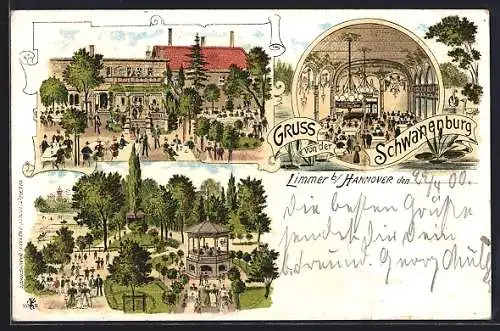 GRUSS
von der
Schwanenburg
Limmer b/ HANNOVER den 22/4 00.
Die besten Grüße
sendet dir dein
Freund. Georg